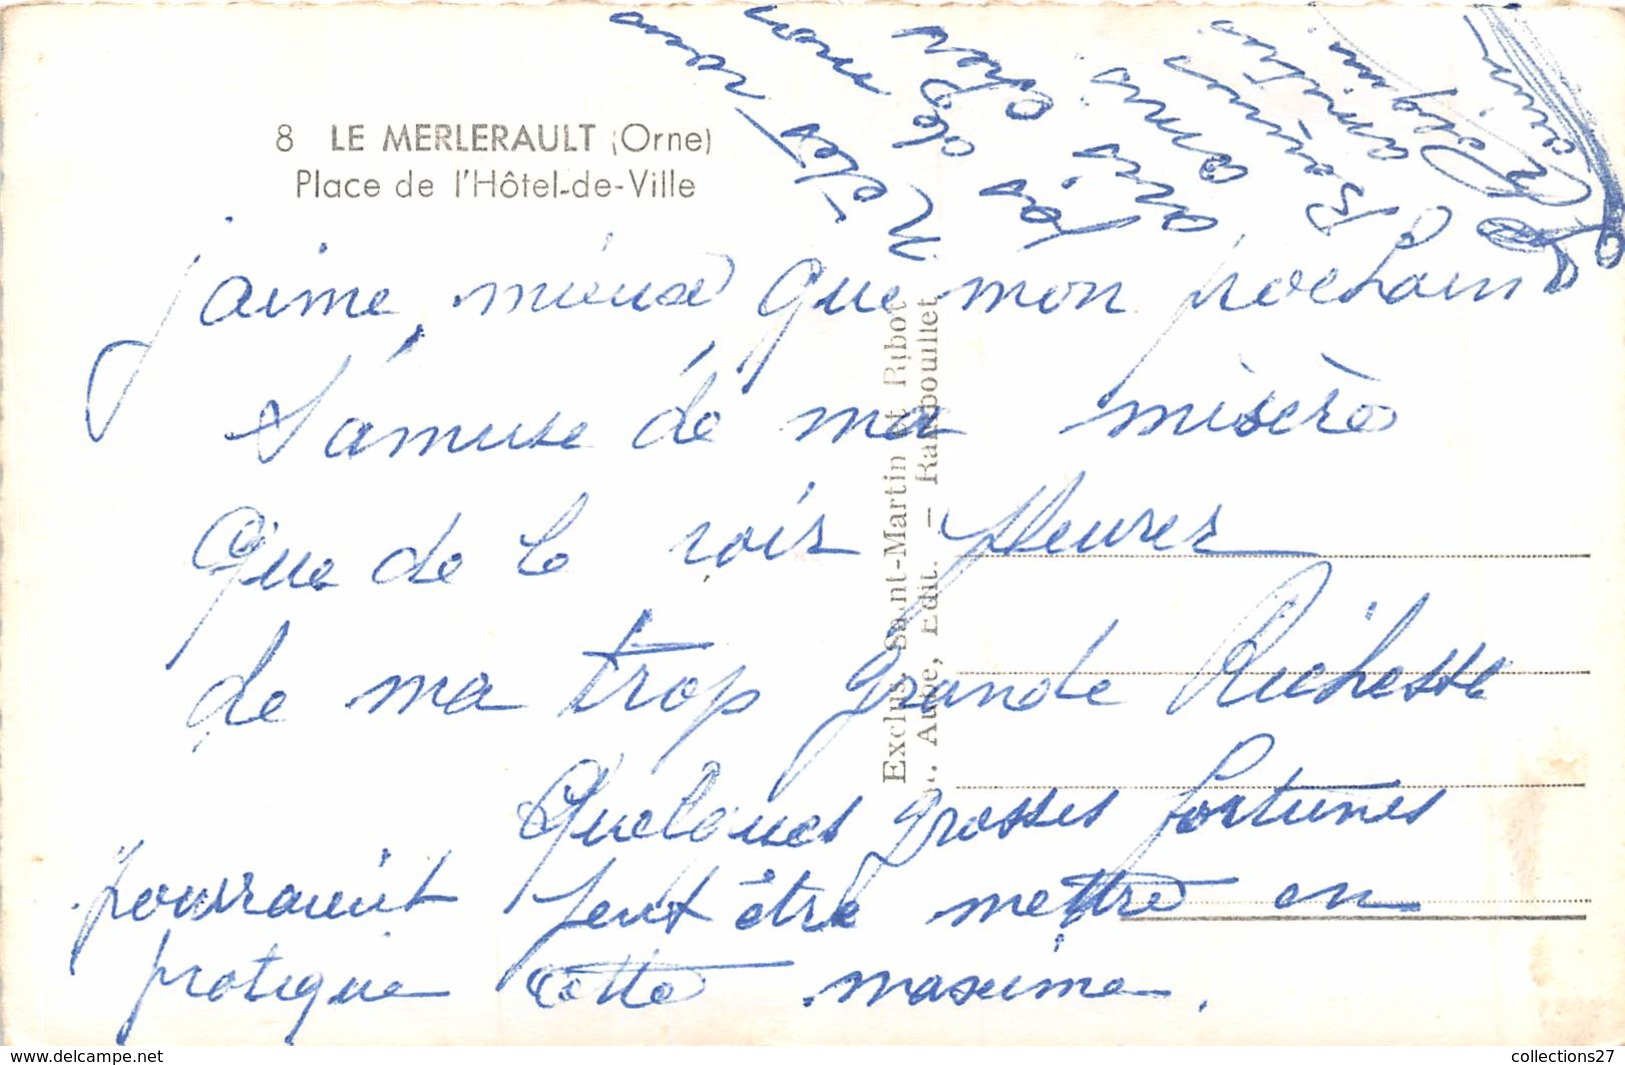 8 LE MERLERAULT (Orne)
Place de l'Hôtel-de-Ville
j'aime mieux que mon prochain
s'amuse de ma misère
Que de le voir pleurer
de ma trop grande Richesse
Quelques grosses fortunes
pourraient peut être mettre en
pratique cette maxime.
N'êtes vous
pas de mon
avis cher
ami
Bonnes
amitiés
Exclus. Saint-Martin et Ribot
Aubé, Edit. — Rambouillet
www.delcampe.net
collections27